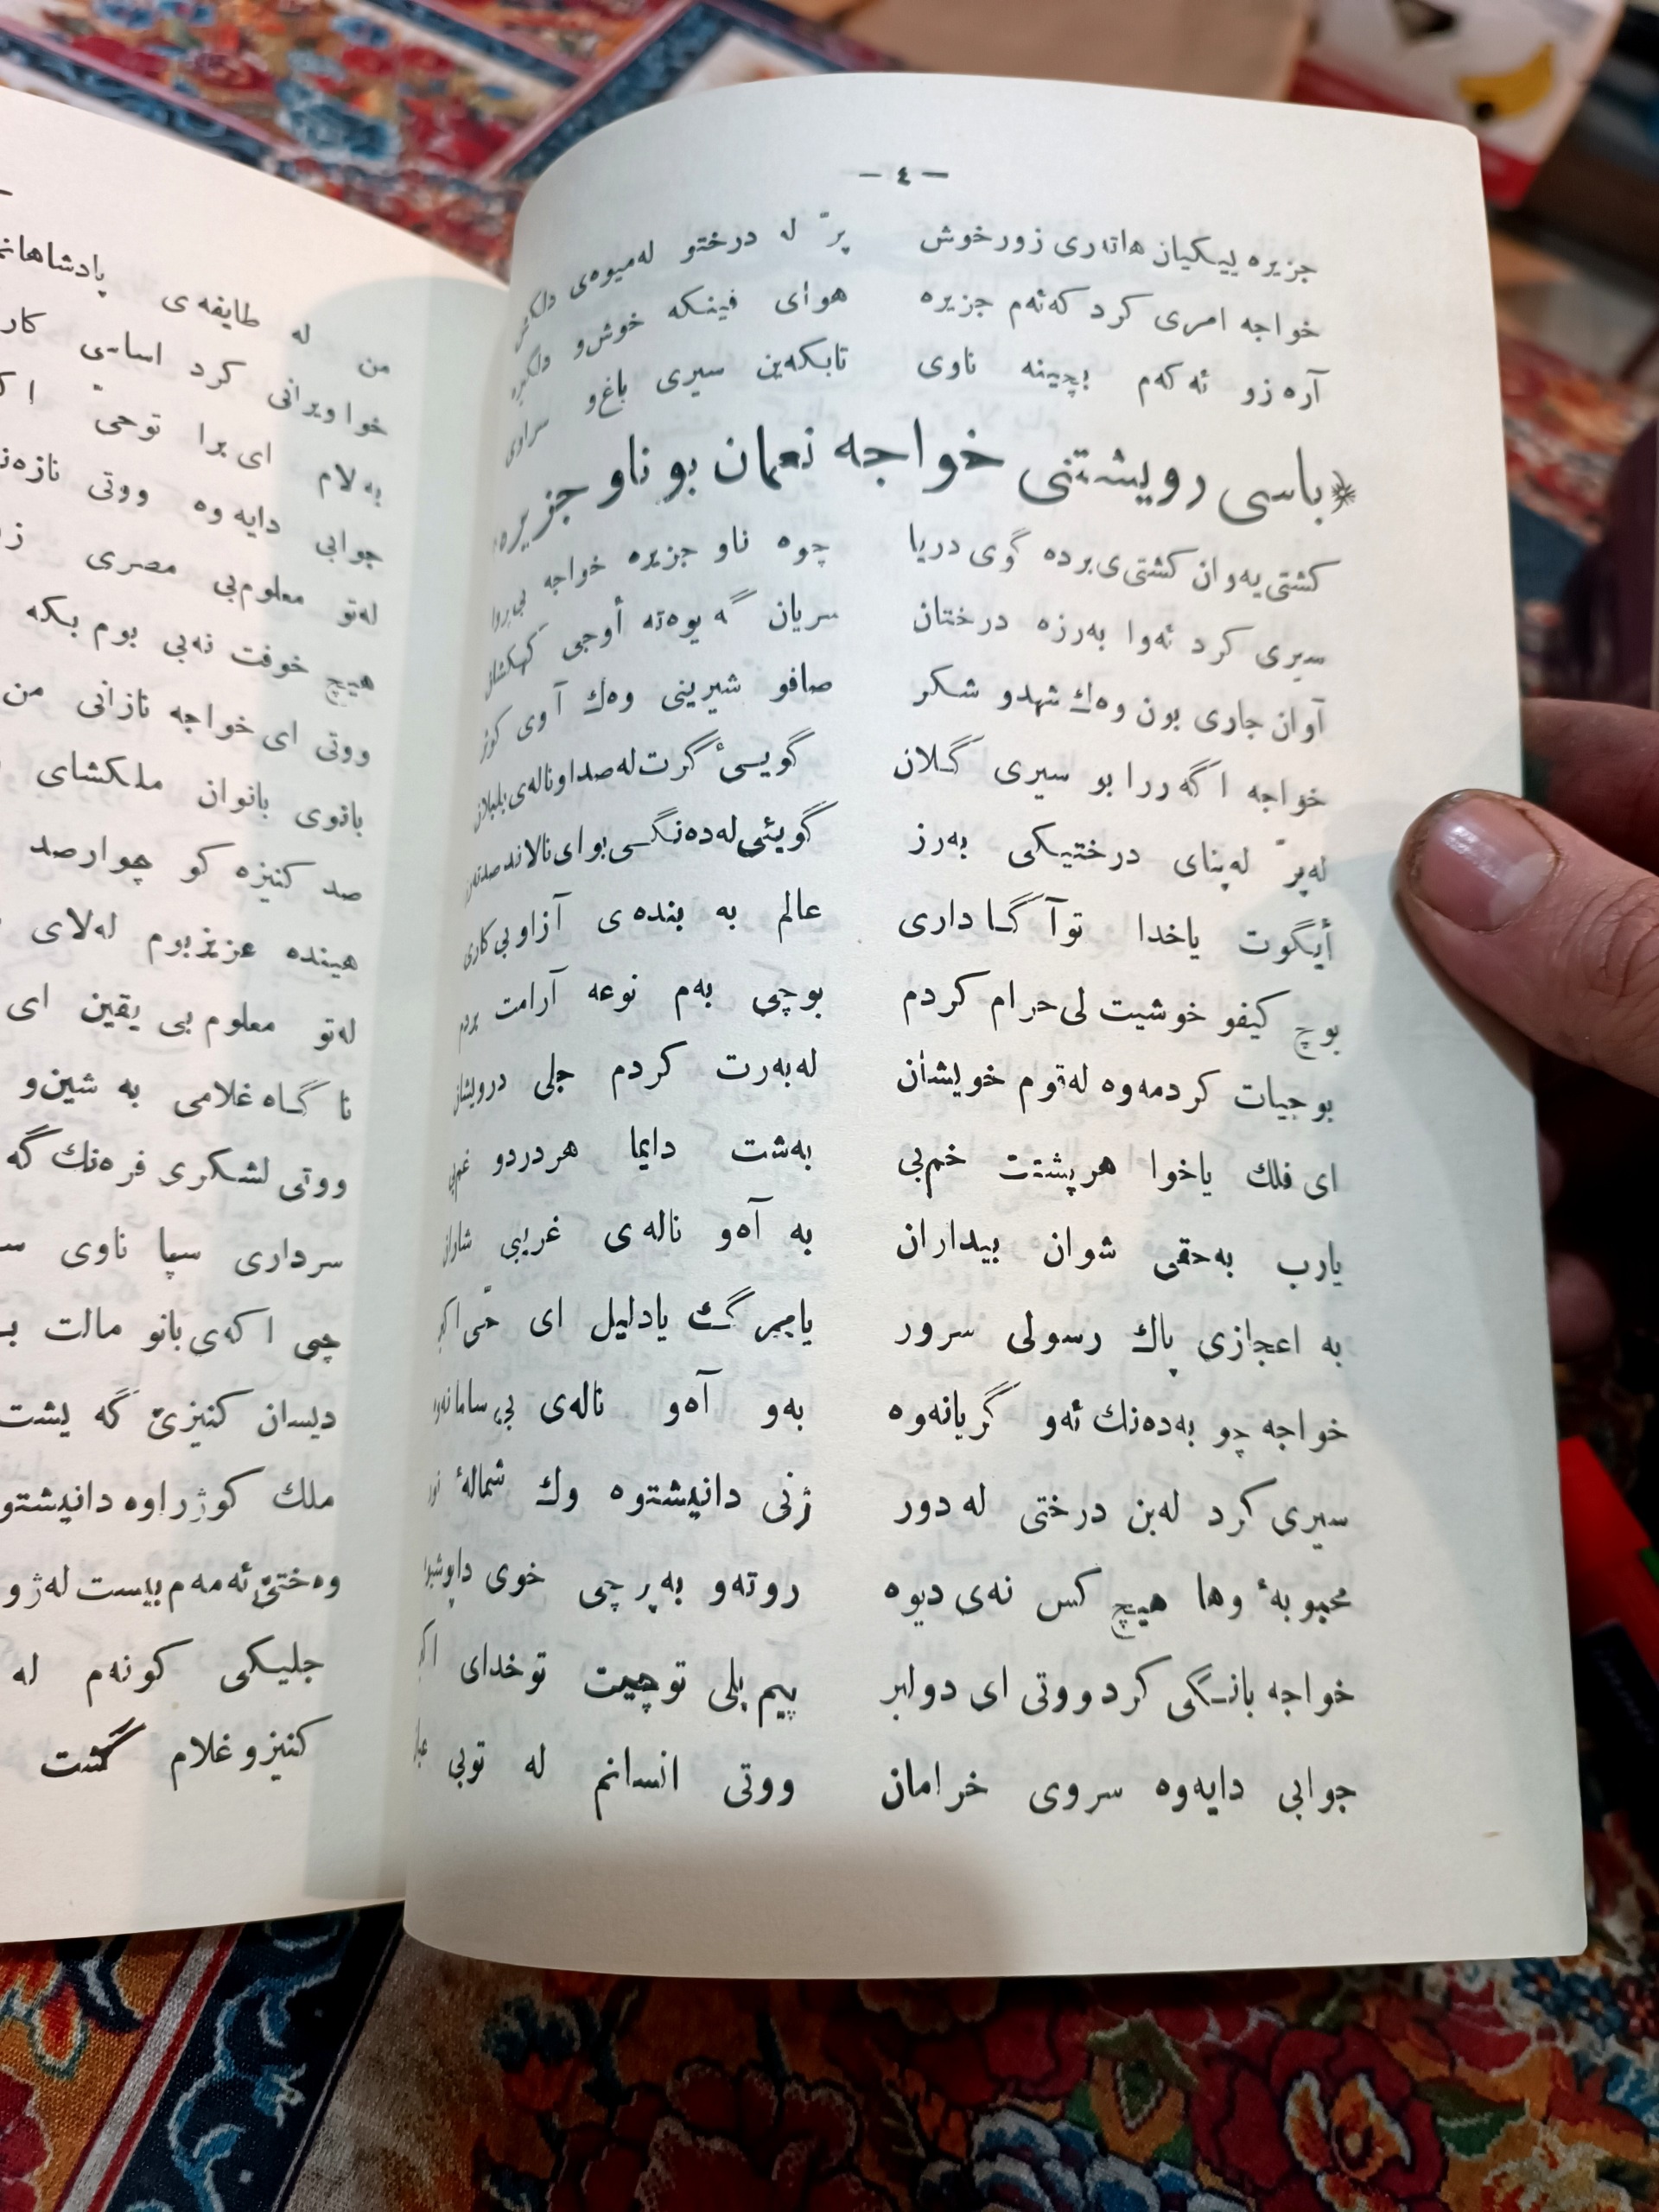 — ٤ —
جزیره ییکیان هاته‌ری زورخوش پرّ له درختو له‌میوه‌ی دلکش
خواجه امری کرد که‌ئه‌م جزیره هوای فینکه خوش‌و دلگیره
آره‌زو ئه‌که‌م بچینه ناوی تابکه‌ین سیری باغ‌و سراوی
باسی رویشتنی خواجه نعمان بو ناو جزیره
کشتی‌یه‌وان کشتی‌ی برده گوی دریا چوه ناو جزیره خواجه بی‌پروا
سیری کرد ئه‌وا به‌رزه درختان سریان گه یوه‌ته أوجی کهکشان
آوان جاری بون وه‌ك شهدو شکر صافو شیرینی وه‌ك آوی کوثر
خواجه اگه‌ررا بو سیری گلان گویسیٔ گرت له‌صداو ناله‌ی بلبلان
له‌پرّ له‌پنای درختیکی به‌رز گویئی له‌ده‌نگی بو ای نالاند
أیگوت یاخدا توآ گاداری عالم به بنده‌ی آزاو بی‌کاری
بوچ کیفو خوشیت لی‌حرام کردم بوچی به‌م نوعه آرامت بردم
بوجیات کردمه‌وه له‌قوم خویشان له‌به‌رت کردم جلی درویشان
ای فلك یاخوا هرپشتت خم‌بی به‌شت دایما هردردو غم‌بی
یارب به‌حقی شوان بیداران به آه‌و ناله‌ی غریبی شاران
به اعجازی پاك رسولی سرور یامرگ یادلیل ای حی اکبر
خواجه چو به‌ده‌نك ئه‌و گریانه‌وه به‌و آه‌و ناله‌ی بی‌سامانه‌وه
سیری کرد له‌بن درختی له دور ژنی دانیشتوه وك شمالهٔ نور
محبوبهٔ وها هیچ کس نه‌ی دیوه روته‌و به‌پرچی خوی داپوشیوا
خواجه بانگی کردووتی ای دولبر پیم بلی توچیت توخدای
جوابی دایه‌وه سروی خرامان ووتی انسانم له توبی
من له طایفه‌ی پادشاهانم
خوا ویرانی کرد اساسی
به‌لام ای برا توحی
جوابی دایه‌وه ووتی
له‌تو معلوم‌بی مصری
هیچ خوفت نه‌بی بوم بکه
ووتی ای خواجه نازانی من
بانوی بانوان ملکشای
صد کنیزه کو چوارصد
هینده عزیزبوم له‌لای
له‌تو معلوم بی یقین ای
ناگاه غلامی به شین‌و
ووتی لشکری فره‌نك گه
سرداری سپا ناوی
چی اکه‌ی بانو مالت
دیسان کنیزیٔ گه یشت
ملك کوژراوه دانیشتو
وه‌ختیٔ ئه‌مه‌م بیست له‌ژو
جلیکی کونه‌م له
کنیزو غلام گشت